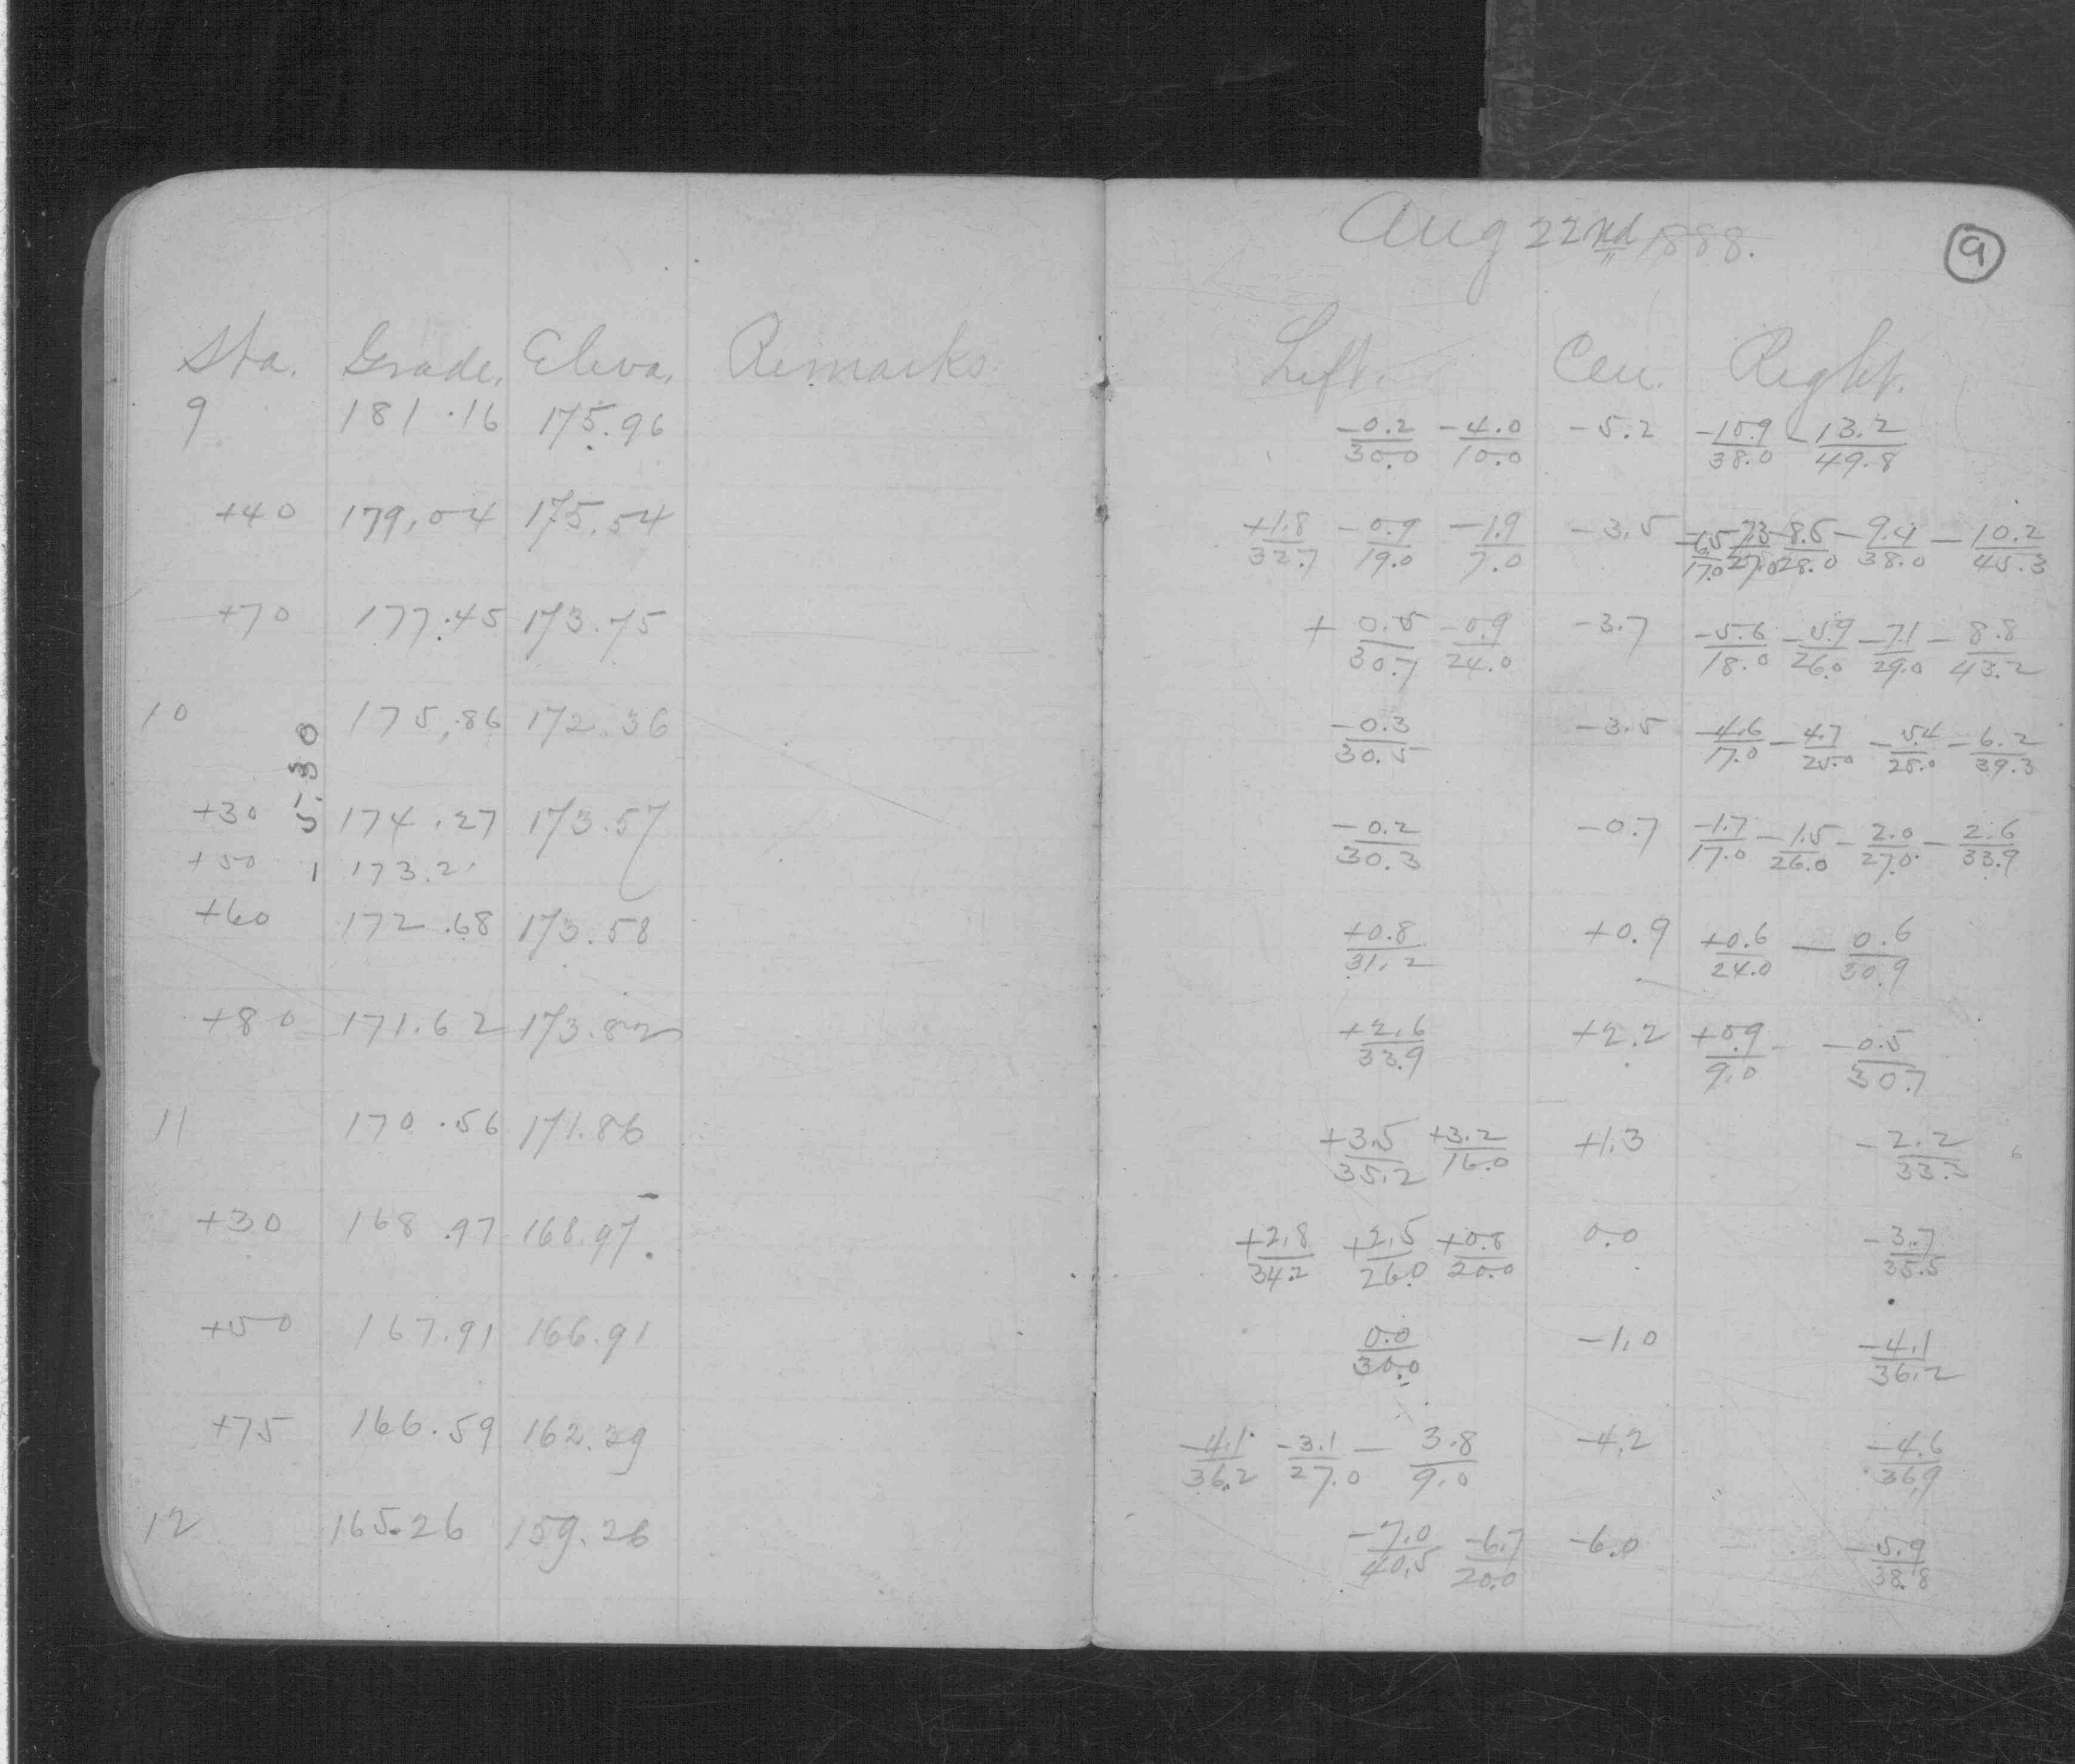 Aug 22nd 1888.
9
Sta. Grade, Eleva, Remarks. Left. Cen. Right.
9 181.16 175.96 -0.2/30.0 -4.0/10.0 -5.2 -10.9/38.0 -13.2/49.8
+40 179.04 175.54 +1.8/32.7 -0.9/19.0 -1.9/7.0 -3.5 -6.5/17.0 7.3/27.0 -8.5/28.0 -9.4/38.0 -10.2/45.3
+70 177.45 173.75 +0.5/30.7 -0.9/24.0 -3.7 -5.6/18.0 -5.9/26.0 -7.1/29.0 -8.8/43.2
10 175.86 172.36 -0.3/30.5 -3.5 -4.6/17.0 -4.7/25.0 -5.4/25.0 -6.2/39.3
5.30
+30 174.27 173.57 -0.2/30.3 -0.7 -1.7/17.0 -1.5/26.0 -2.0/27.0 -2.6/33.9
+50 1 173.21
+60 172.68 173.58 +0.8/31.2 +0.9 +0.6/24.0 -0.6/30.9
+80 171.62 173.82 +2.6/33.9 +2.2 +0.9/9.0 -0.5/30.7
11 170.56 171.86 +3.5/35.2 +3.2/16.0 +1.3 -2.2/33.3
+30 168.97 168.97 +2.8/34.2 +2.5/26.0 +0.8/20.0 0.0 -3.7/35.5
+50 167.91 166.91 0.0/30.0 -1.0 -4.1/36.2
+75 166.59 162.39 -4.1/36.2 -3.1/27.0 -3.8/9.0 -4.2 -4.6/36.9
12 165.26 159.26 -7.0/40.5 -6.7/20.0 -6.0 -5.9/38.8